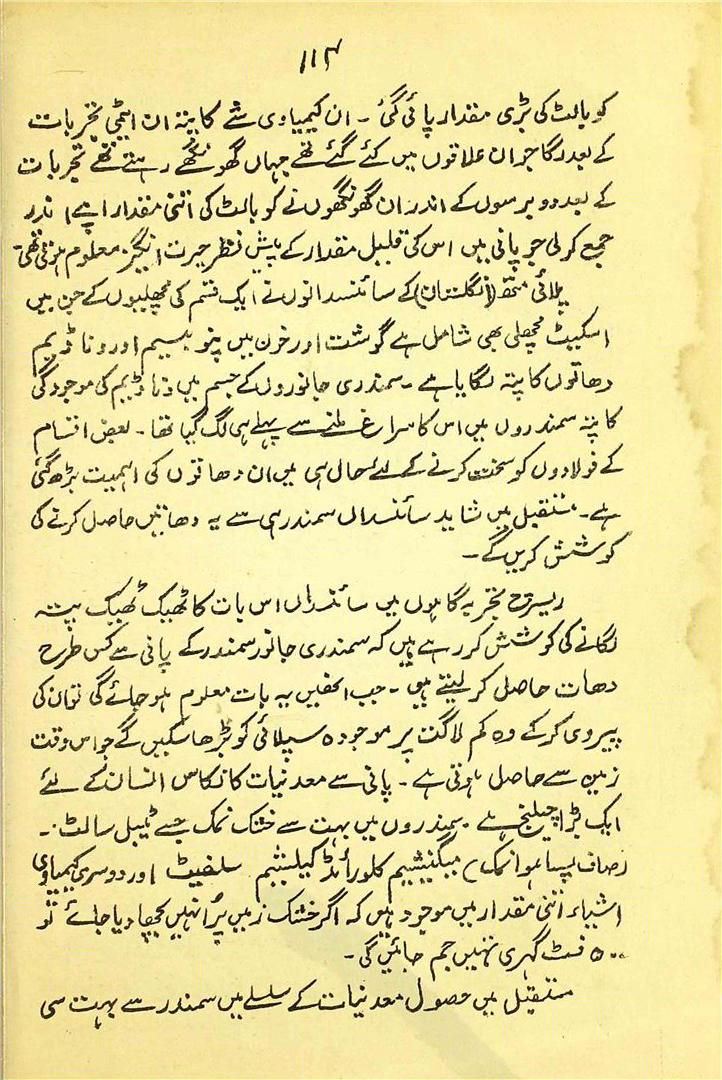 ۱۱۴
کوبالٹ کی بڑی مقدار پائی گئی ۔ ان کیمیاوی شے کا پتہ ان ایٹمی تجربات
کے بعد لگا جو ان علاقوں میں کئے گئے تھے جہاں گھونگھے رہتے تھے تجربات
کے بعد دو برسوں کے اندر ان گھونگھوں نے کوبالٹ کی اتنی مقدار اپنے اندر
جمع کر لی جو پانی میں اس کی قلیل مقدار کے پیش نظر حیرت انگیز معلوم ہوتی تھی۔
پلائی متھ (انگلستان) کے سائنسدانوں نے ایک قسم کی مچھلیوں کے جن میں
اسکیٹ مچھلی بھی شامل ہے گوشت اور خون میں پنو بیسیم اور ونا ڈیم
دھاتوں کا پتہ لگایا ہے ۔ سمندری جانوروں کے جسم میں ونا ڈیم کی موجودگی
کا پتہ سمندروں میں اس کا سراغ ملنے سے پہلے ہی لگ گیا تھا ۔ بعض اقسام
کے فولادوں کو سخت کرنے کے لئے حال ہی میں ان دھاتوں کی اہمیت بڑھ گئی
ہے ۔ مستقبل میں شاید سائنسداں سمندر ہی سے یہ دھاتیں حاصل کرنے کی
کوشش کریں گے ۔
ریسرچ تجربہ گاہوں میں سائنسداں اس بات کا ٹھیک ٹھیک پتہ
لگانے کی کوشش کر رہے ہیں کہ سمندری جانور سمندر کے پانی سے کس طرح
دھات حاصل کر لیتے ہیں ۔ جب انھیں یہ بات معلوم ہو جائے گی تو ان کی
پیروی کر کے وہ کم لاگت پر موجودہ سپلائی کو بڑھا سکیں گے جو اس وقت
زمین سے حاصل ہوتی ہے ۔ پانی سے معدنیات کا نکاس انسان کے لئے
ایک بڑا چیلنج ہے ۔ سمندروں میں بہت سے خشک نمک جسے ٹیبل سالٹ ۔
(صاف پسا ہوا نمک) میگنیشیم کلورائڈ کیلشیم سلفیٹ اور دوسری کیمیاوی
اشیاء اتنی مقدار میں موجود ہیں کہ اگر خشک زمین پر انہیں بچھا دیا جائے تو
۵۰۰ فٹ گہری تہیں جم جائیں گی ۔
مستقبل میں حصول معدنیات کے سلسلے میں سمندر سے بہت سی